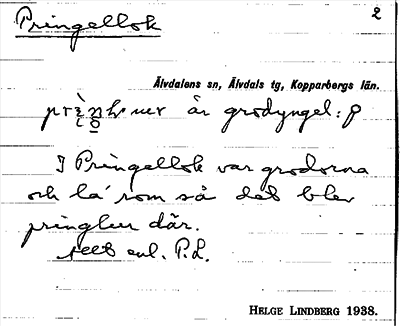 Pringellok
2
Älvdalens sn, Älvdals tg, Kopparbergs län.
är grodyngel:
I Pringellok var grodorna
och la' rom så det blev
pringlur där.
enl. P.L.
HELGE LINDBERG 1938.